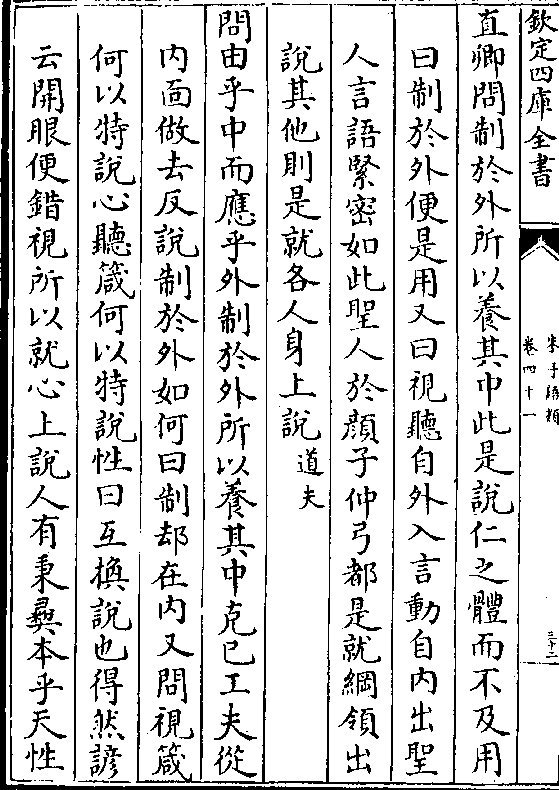 欽定四庫全書
朱子語類
卷四十一
三十二
直卿問制於外所以養其中此是說仁之體而不及用
曰制於外便是用又曰視聽自外入言動自內出聖
人言語緊密如此聖人於顔子仲弓都是就綱領出
說其他則是就各人身上說道夫
問由乎中而應乎外制於外所以養其中克已工夫從
內面做去反說制於外如何曰制却在內又問視箴
何以特說心聽箴何以特說性曰互換說也得然諺
云開眼便錯視所以就心上說人有秉彞本乎天性